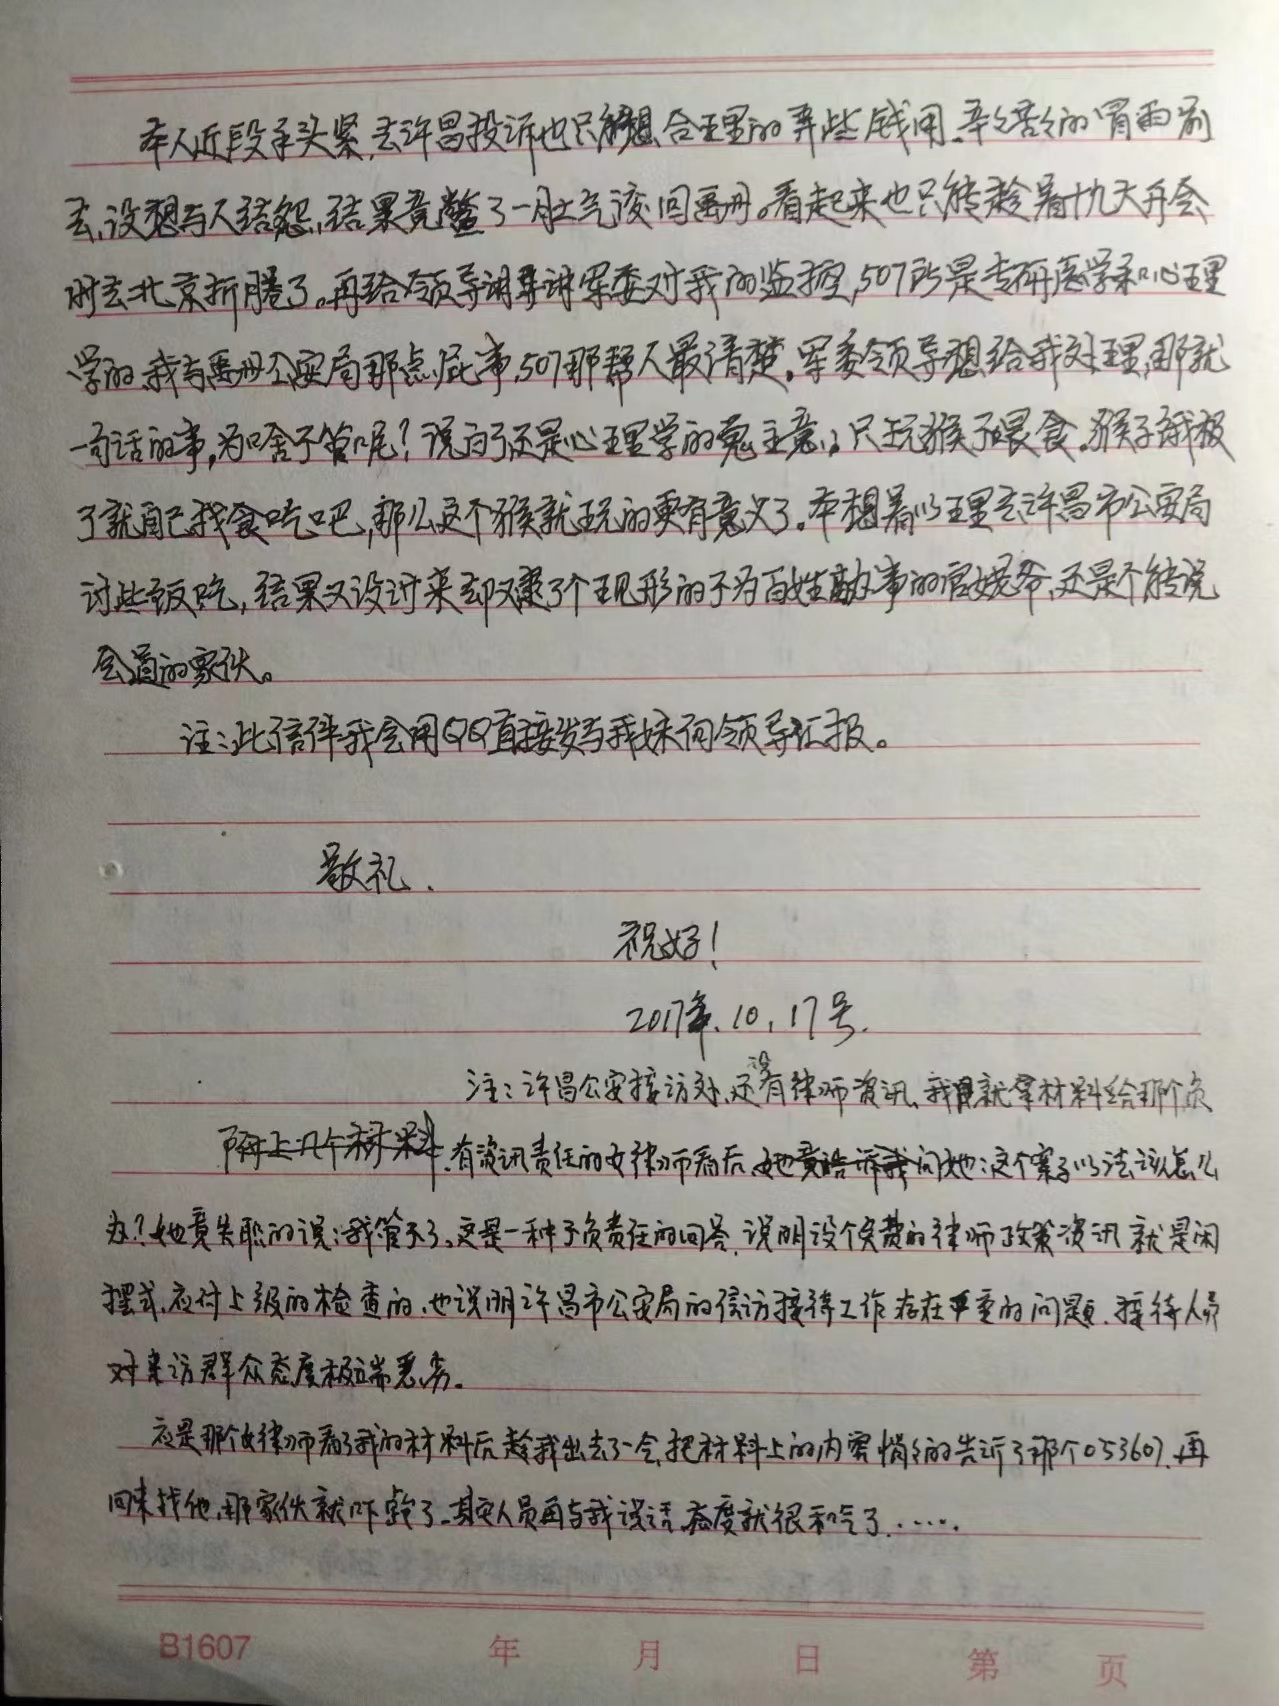 本人近段手头紧,去许昌投诉也只能想合理的弄些钱用,辛辛苦苦的冒雨前
去,没想与人结怨,结果竟憋了一肚气滚回禹州。看起来也只能趁着十九大再会
时去北京折腾了。再给领导讲讲军委对我的监控,507所是专研医学和心理
学的,我与禹州公安局那点屁事,507那帮人最清楚。军委领导想给我处理,那就
一句话的事,为啥不管呢?说白了还是心理学的鬼主意,只玩猴不喂食。猴子饿极
了就自己找食吃吧,那么这个猴就玩的更有意义了。本想着以理去许昌市公安局
讨些饭吃,结果又没讨来却又逮了个现形的不为百姓办事的官娘爷,还是个能说
会道的家伙。
注:此信件我会用QQ直接发与我妹向领导汇报。
敬礼.
祝好!
2017年.10.17号.
注:许昌公安接访处,还没有律师资讯,我就拿材料给那个负
附上几个材料,有资讯责任的女律师看后,她竟告诉我问她:这个案子以法该怎么
办?她竟失职的说:我管不了。这是一种不负责任的回答,说明设个免费的律师政策资讯就是闲
摆式,应付上级的检查的,也说明许昌市公安局的信访接待工作存在严重的问题,接待人员
对来访群众态度极端恶劣。
应是那个女律师看了我的材料后,趁我出去了一会,把材料上的内容悄悄的告诉了那个053607,再
回来找他,那家伙就吓跑了。其它人员再与我说话,态度就很和气了......
B1607 年 月 日 第 页